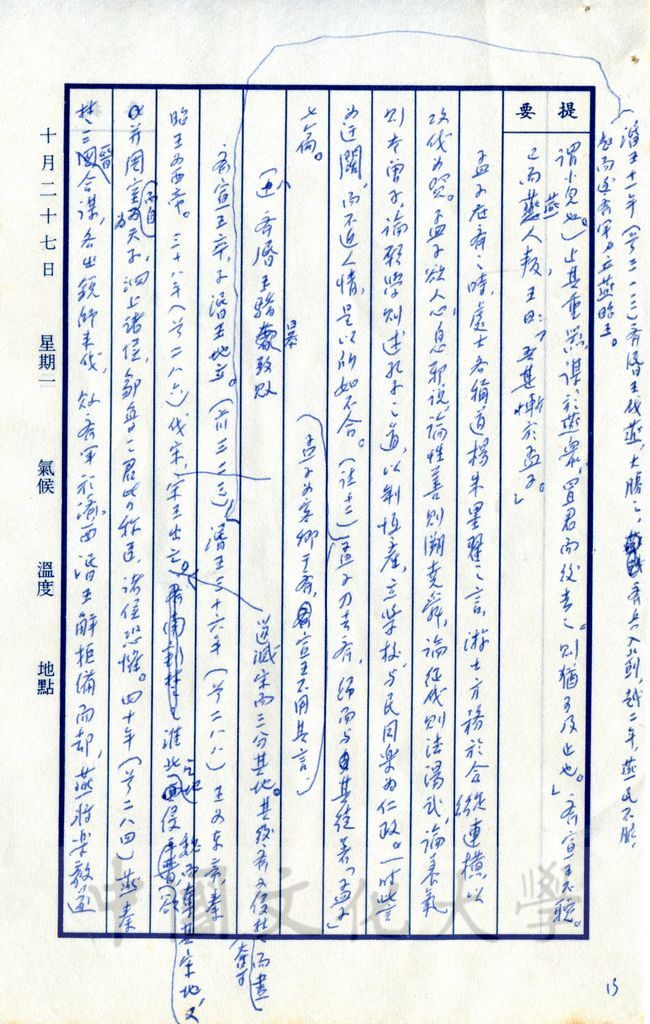 (湣王十一年(前三一三)齊湣王伐燕,大勝之,齊兵入薊,越二年,燕民不服,
起而逐齊軍,立燕昭王。
提要
謂小兒也。)止其重器,謀於燕眾,置君而後去之。則猶可及止也。」齊宣王不聽。
已而燕人叛,王曰:「吾甚慚於孟子。」
孟子在齊之時,處士各稱道楊朱墨翟之言,游士方務於合縱連橫,以
攻伐為賢。孟子欲人心,息邪說,論性善則溯堯舜,論征伐則法湯武,論養氣
則本曾子,論願學則述孔子之道,以制恆產,立學校,與民同樂為仁政。一時皆言
為迂闊,而不近人情,是以所如不合。(註十二)孟子乃去齊,歸而與其徒著「孟子」
七篇。
(孟子為客卿于齊,宣王不用其言)
(五)齊湣王驕暴致敗
遂滅宋而三分其地。其後齊又侵楚,而盡奪
齊宣王卒,子湣王地立。(前三二三)湣王三十六年(前二八八)王為東帝,秦
昭王為西帝。三十八年(前二八六)伐宋,宋王出亡。齊南割楚之淮北之地,侵三晉,欲
魏而奪其宋地,又
以并周室,而自為天子,泗上諸侯,鄒魯之君皆稱臣,諸侯恐懼。四十年(前二八四)燕秦
楚三晉合謀,各出銳師來伐,敗齊軍於濟西,湣王解拒備而卻,燕將樂毅遂
十月二十七日 星期一 氣候 溫度 地點
中國文化大學
13